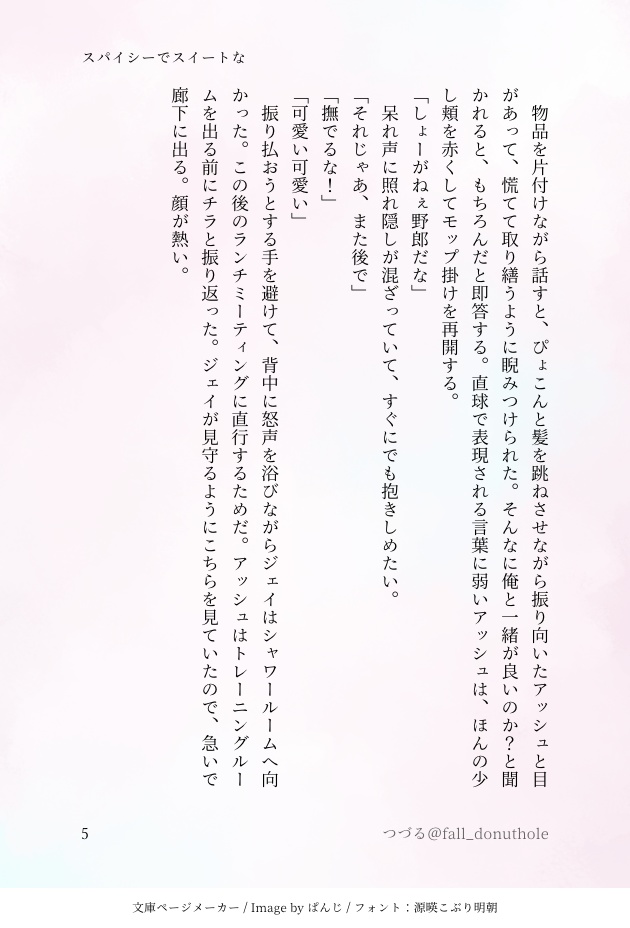 スパイシーでスイートな
　物品を片付けながら話すと、ぴょこんと髪を跳ねさせながら振り向いたアッシュと目
があって、慌てて取り繕うように睨みつけられた。そんなに俺と一緒が良いのか？と聞
かれると、もちろんだと即答する。直球で表現される言葉に弱いアッシュは、ほんの少
し頬を赤くしてモップ掛けを再開する。
「しょーがねぇ野郎だな」
　呆れ声に照れ隠しが混ざっていて、すぐにでも抱きしめたい。
「それじゃあ、また後で」
「撫でるな！」
「可愛い可愛い」
　振り払おうとする手を避けて、背中に怒声を浴びながらジェイはシャワールームへ向
かった。この後のランチミーティングに直行するためだ。アッシュはトレーニングルー
ムを出る前にチラと振り返った。ジェイが見守るようにこちらを見ていたので、急いで
廊下に出る。顔が熱い。
5
つづる@fall_donuthole
文庫ページメーカー / Image by ぱんじ / フォント：源暎こぶり明朝